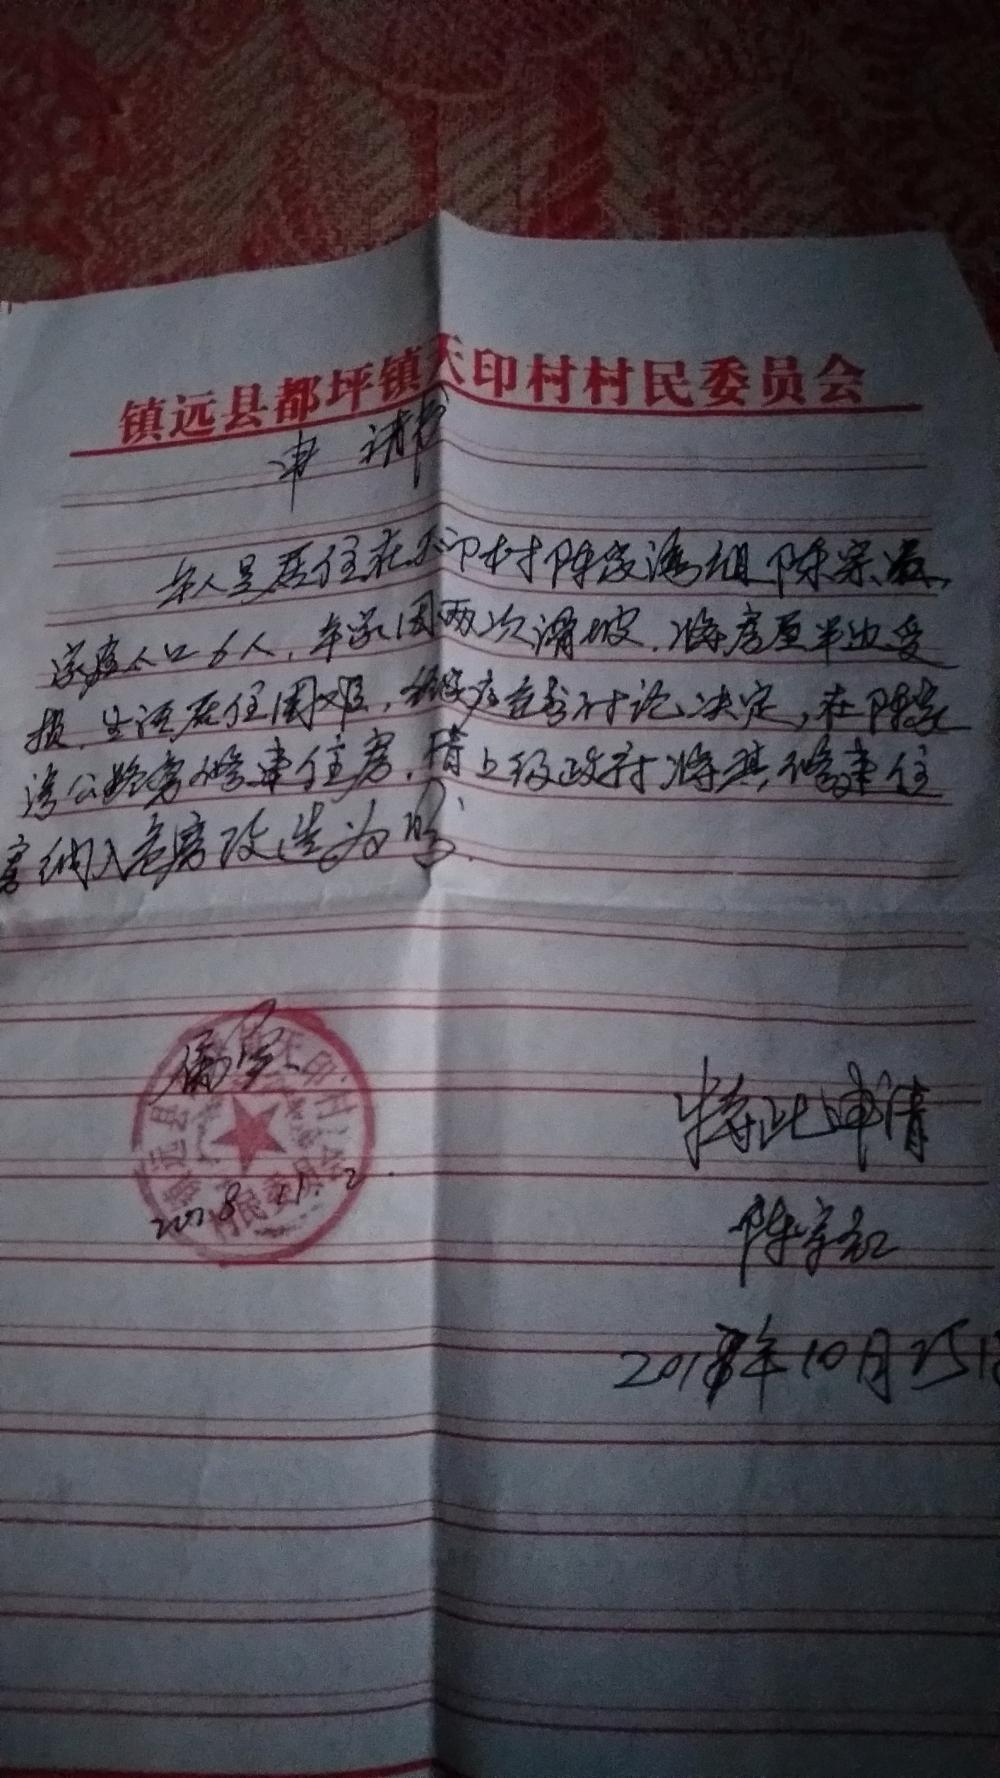 镇远县都坪镇天印村村民委员会
申请书
本人是居住在天印村陈家湾组陈宗
家庭人口6人,本家因两次滑坡.将房屋半边受
损.生活居住困难,讨论决定,在陈家
湾公路旁修建住房.请上级政府将其修建住
房纳入危房改造为盼.
属实
特此申请
陈宗
2018.11.2.
2018年10月25日
镇远县 印村 村民委员会